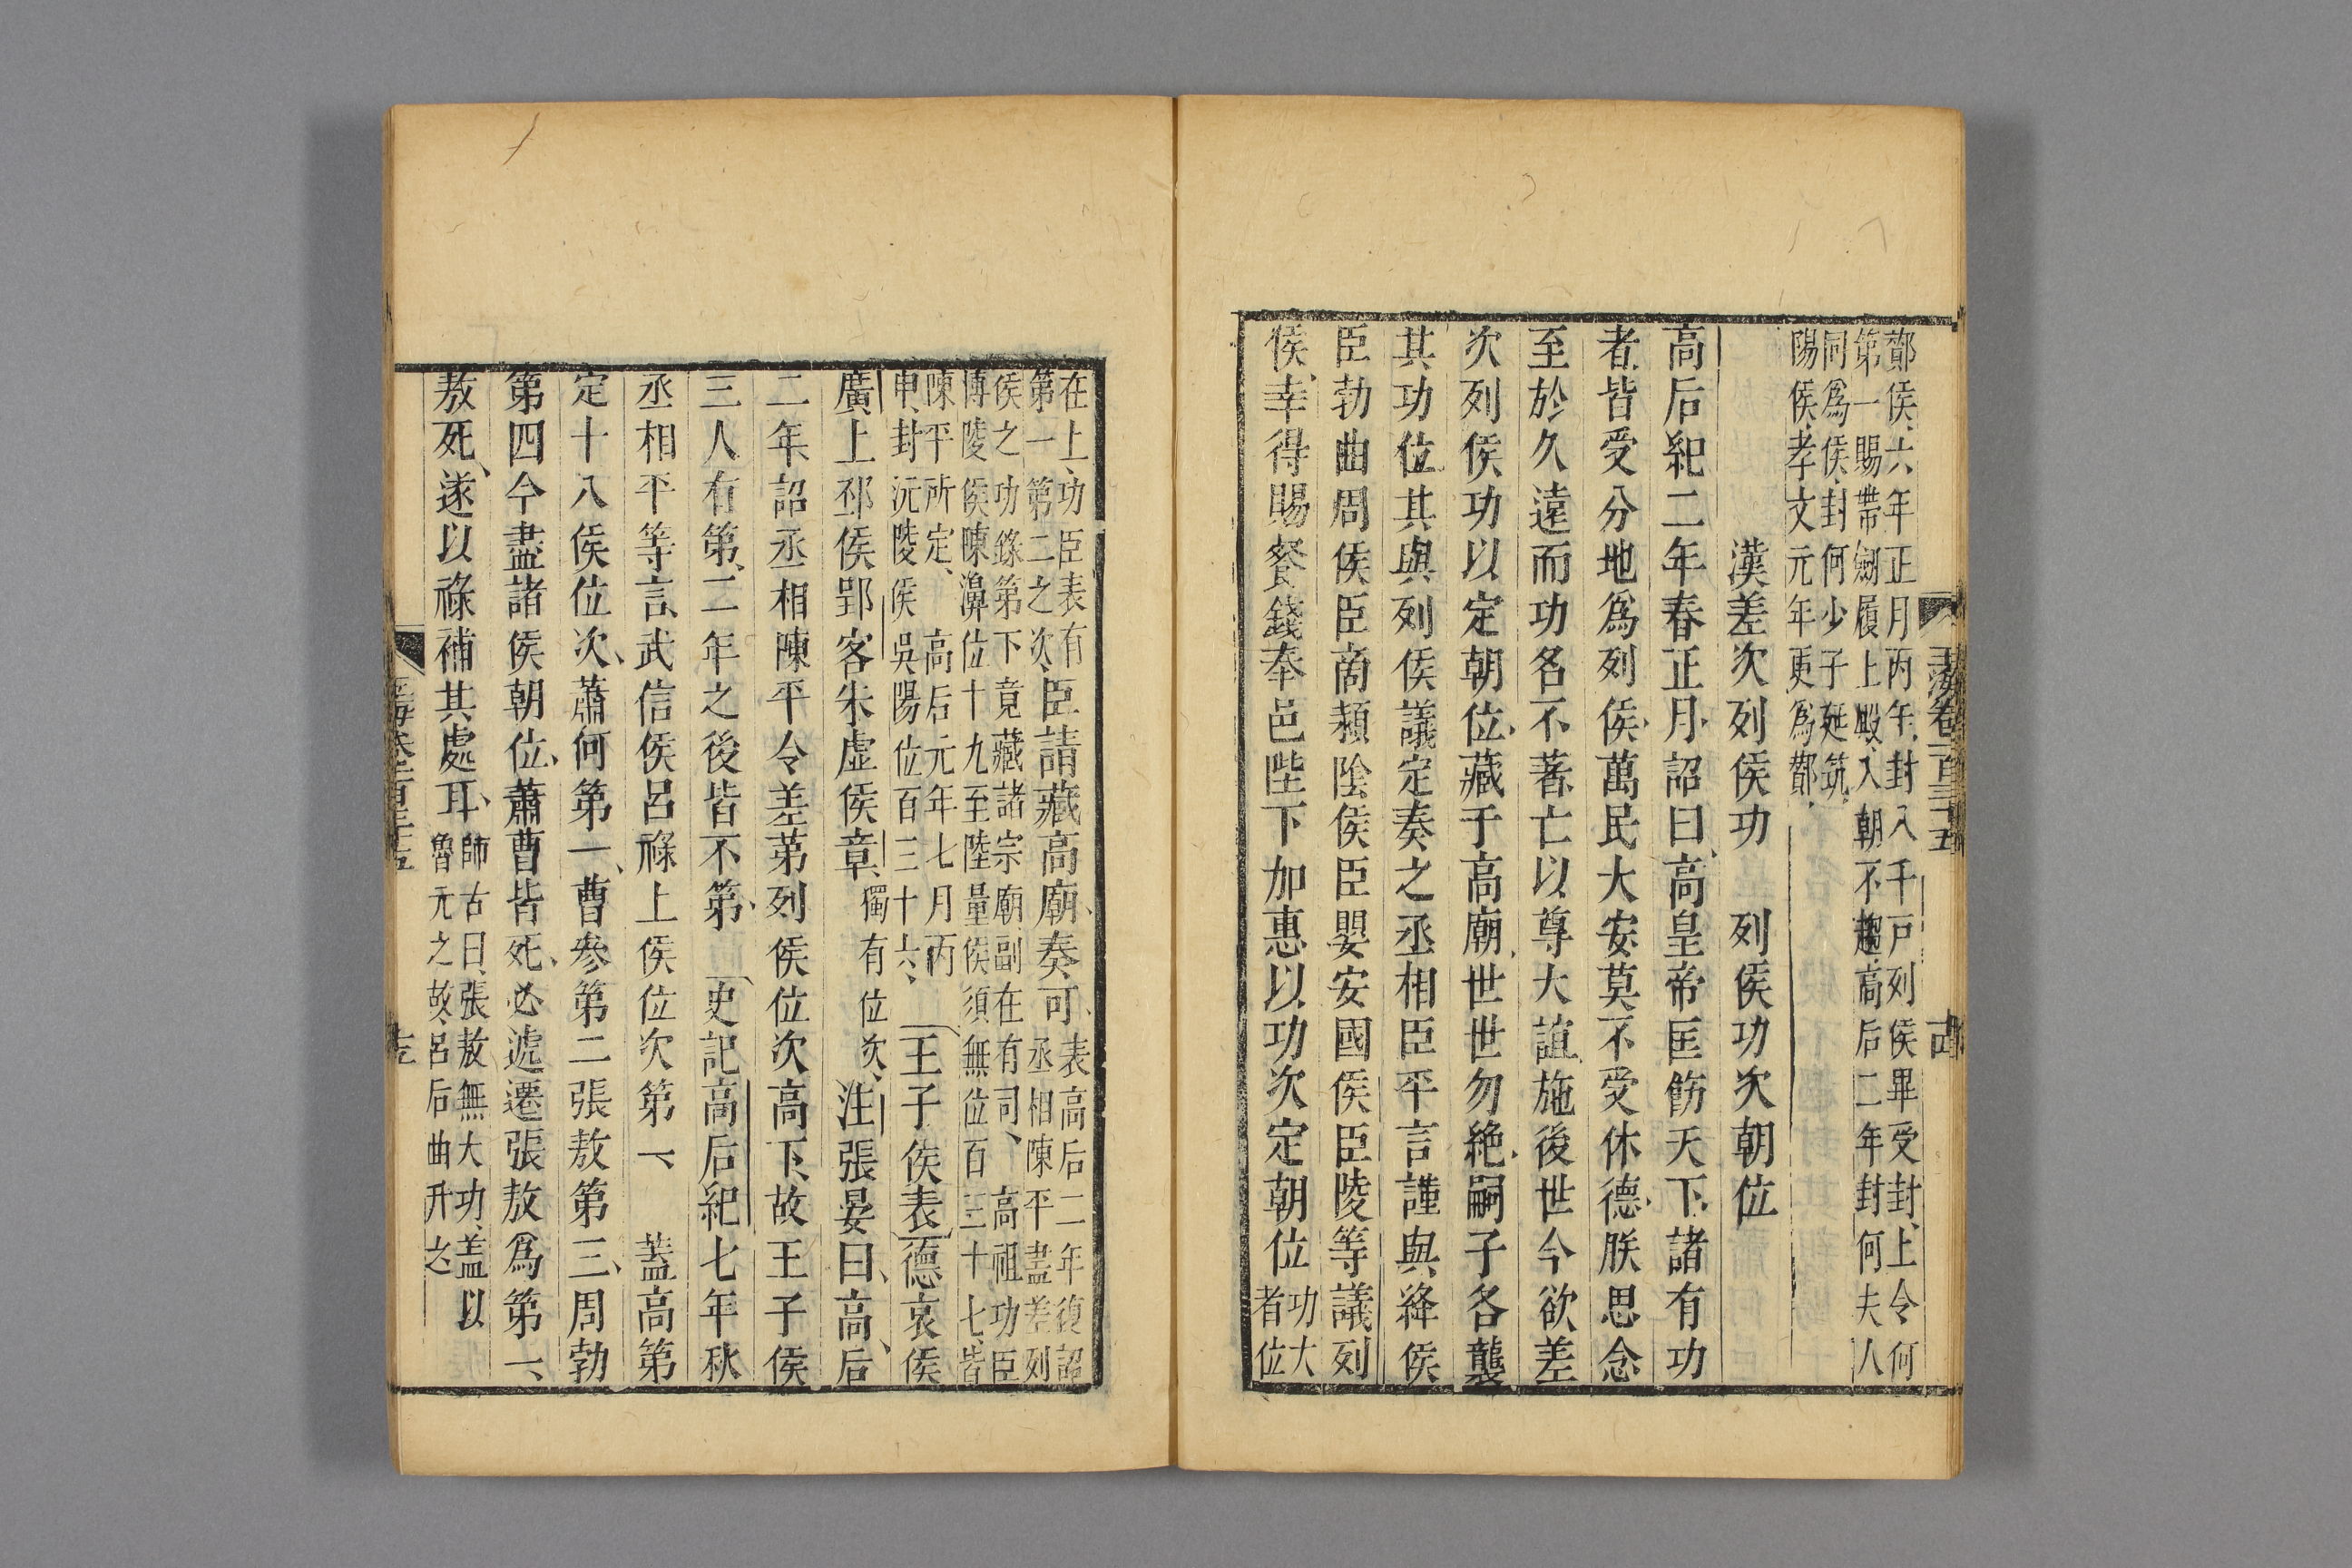 玉海卷一百三十五
鄼侯六年正月丙午封八千戶列侯畢受封上令何
第一賜帶劍履上殿入朝不趨高后二年封何夫人
同為侯封何少子延筑
陽侯孝文元年更為鄼
漢差次列侯功 列侯功次朝位
高后紀二年春正月詔曰高皇帝匡飭天下諸有功
者皆受分地為列侯萬民大安莫不受休德朕思念
至於久遠而功名不著亡以尊大誼施後世今欲差
次列侯功以定朝位藏于高廟世世勿絕嗣子各襲
其功位其與列侯議定奏之丞相臣平言謹與絳侯
臣勃曲周侯臣商潁陰侯臣嬰安國侯臣陵等議列
侯幸得賜餐錢奉邑陛下加惠以功次定朝位功大
者位
在上功臣表有
第一第二之次臣請藏高廟奏可表高后二年復詔
丞相陳平盡差列
侯之功錄第下竟藏諸宗廟副在有司 高祖功臣
博陵侯陳濞位十九至陸量侯須無位百三十七皆
陳平所定 高后元年七月丙
申封沅陵侯吳陽位百三十六 王子侯表德哀侯
廣上邳侯郢客朱虛侯章獨有位次注張晏曰高后
二年詔丞相陳平令差第列侯位次高下故王子侯
三人有第二年之後皆不第 史記高后紀七年秋
丞相平等言武信侯呂祿上侯位次第一 蓋高第
定十八侯位次蕭何第一曹參第二張敖第三周勃
第四今盡諸侯朝位蕭曹皆死必遞遷張敖為第一
敖死遂以祿補其處耳師古曰張敖無大功蓋以
魯元之故呂后曲升之